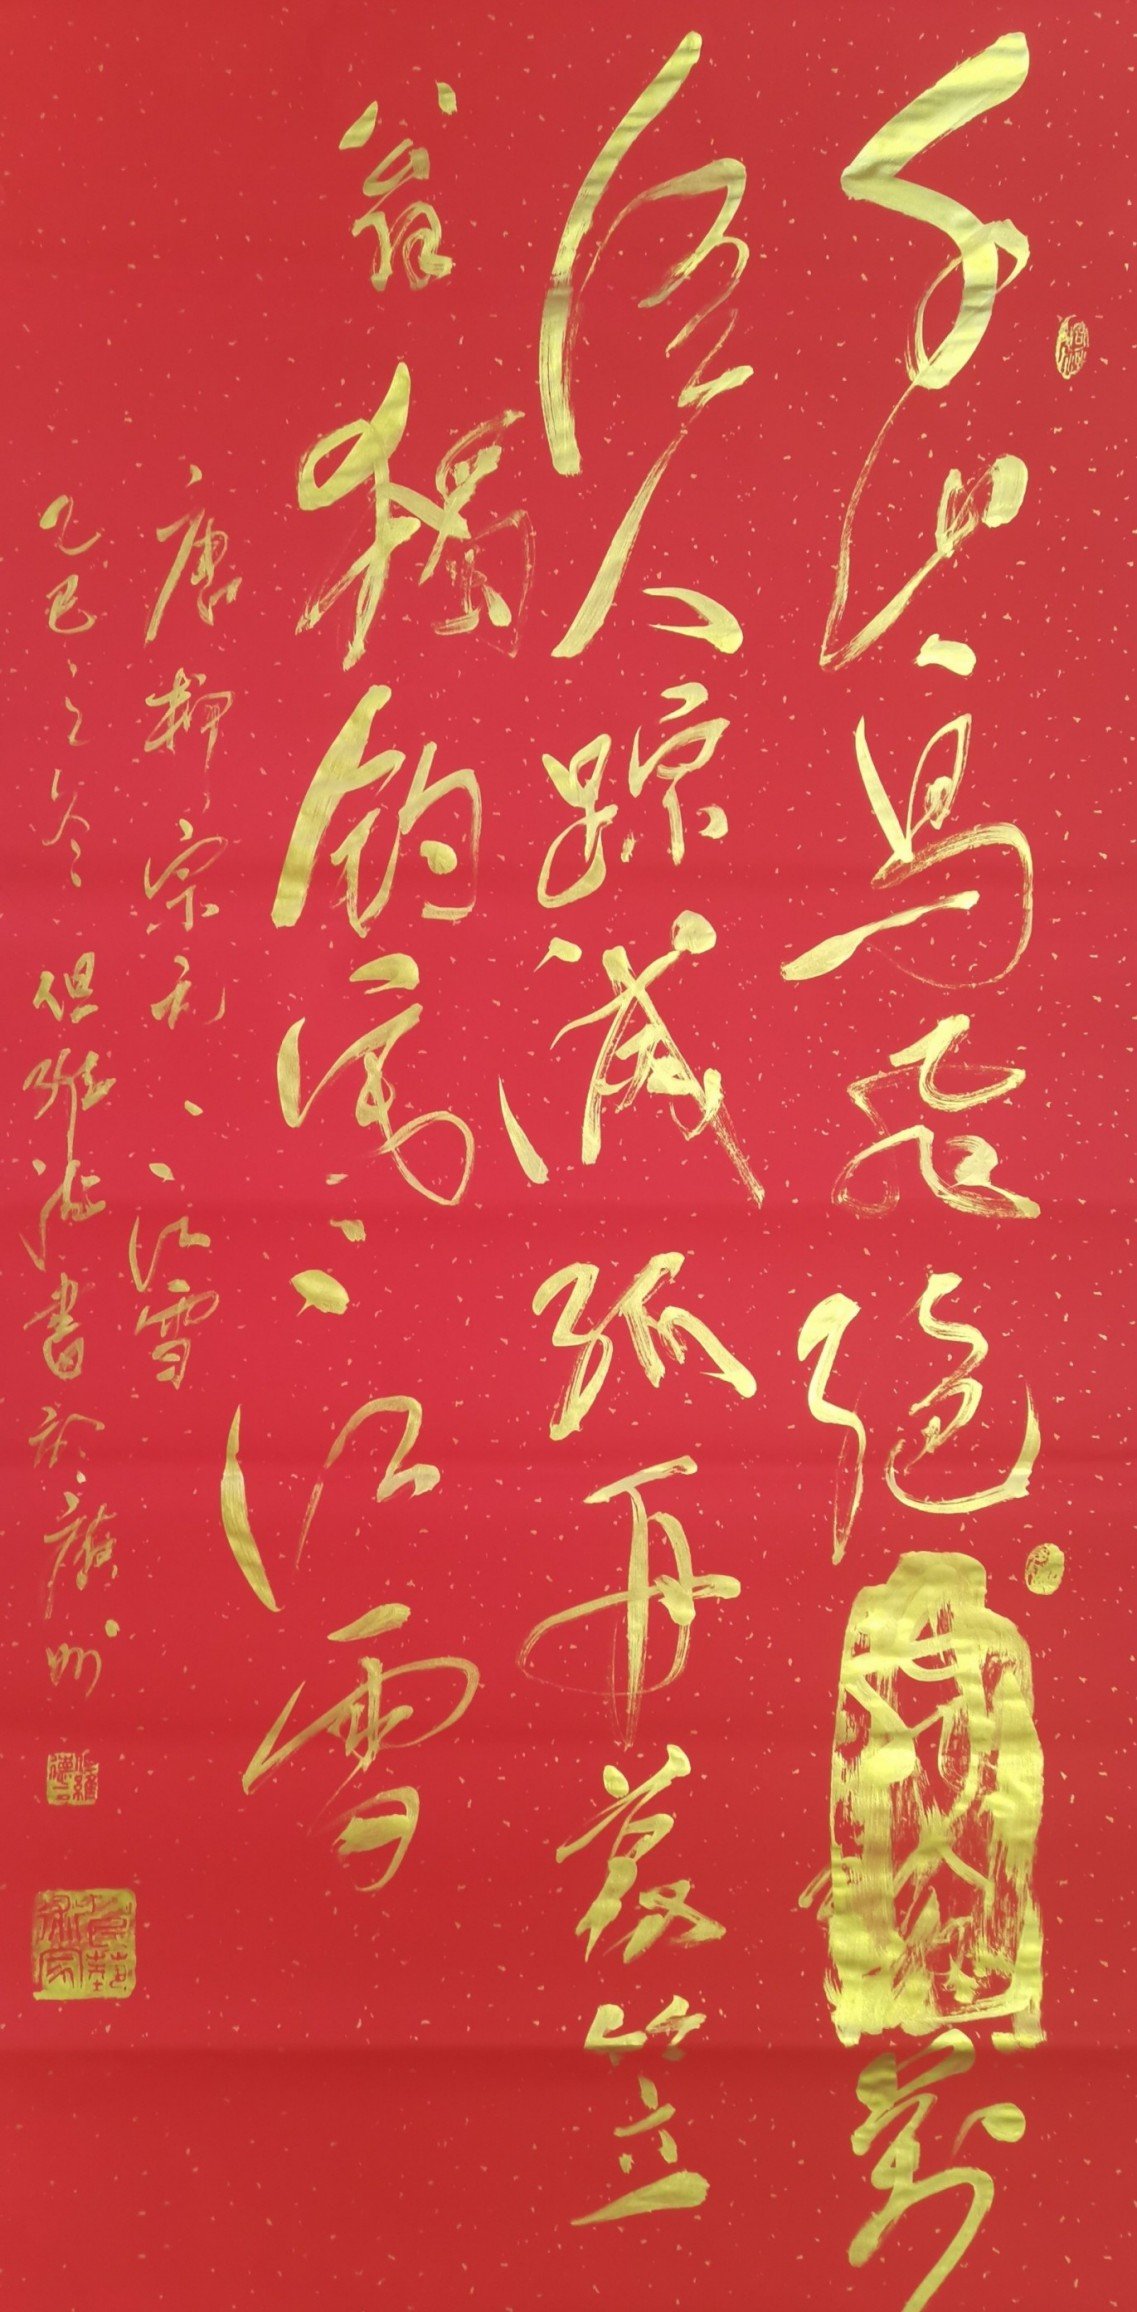 千山鳥飛絕萬
徑人踪滅孤舟蓑笠
翁獨釣寒江雪
唐柳宗元江雪
乙巳之冬但維德書於廣州